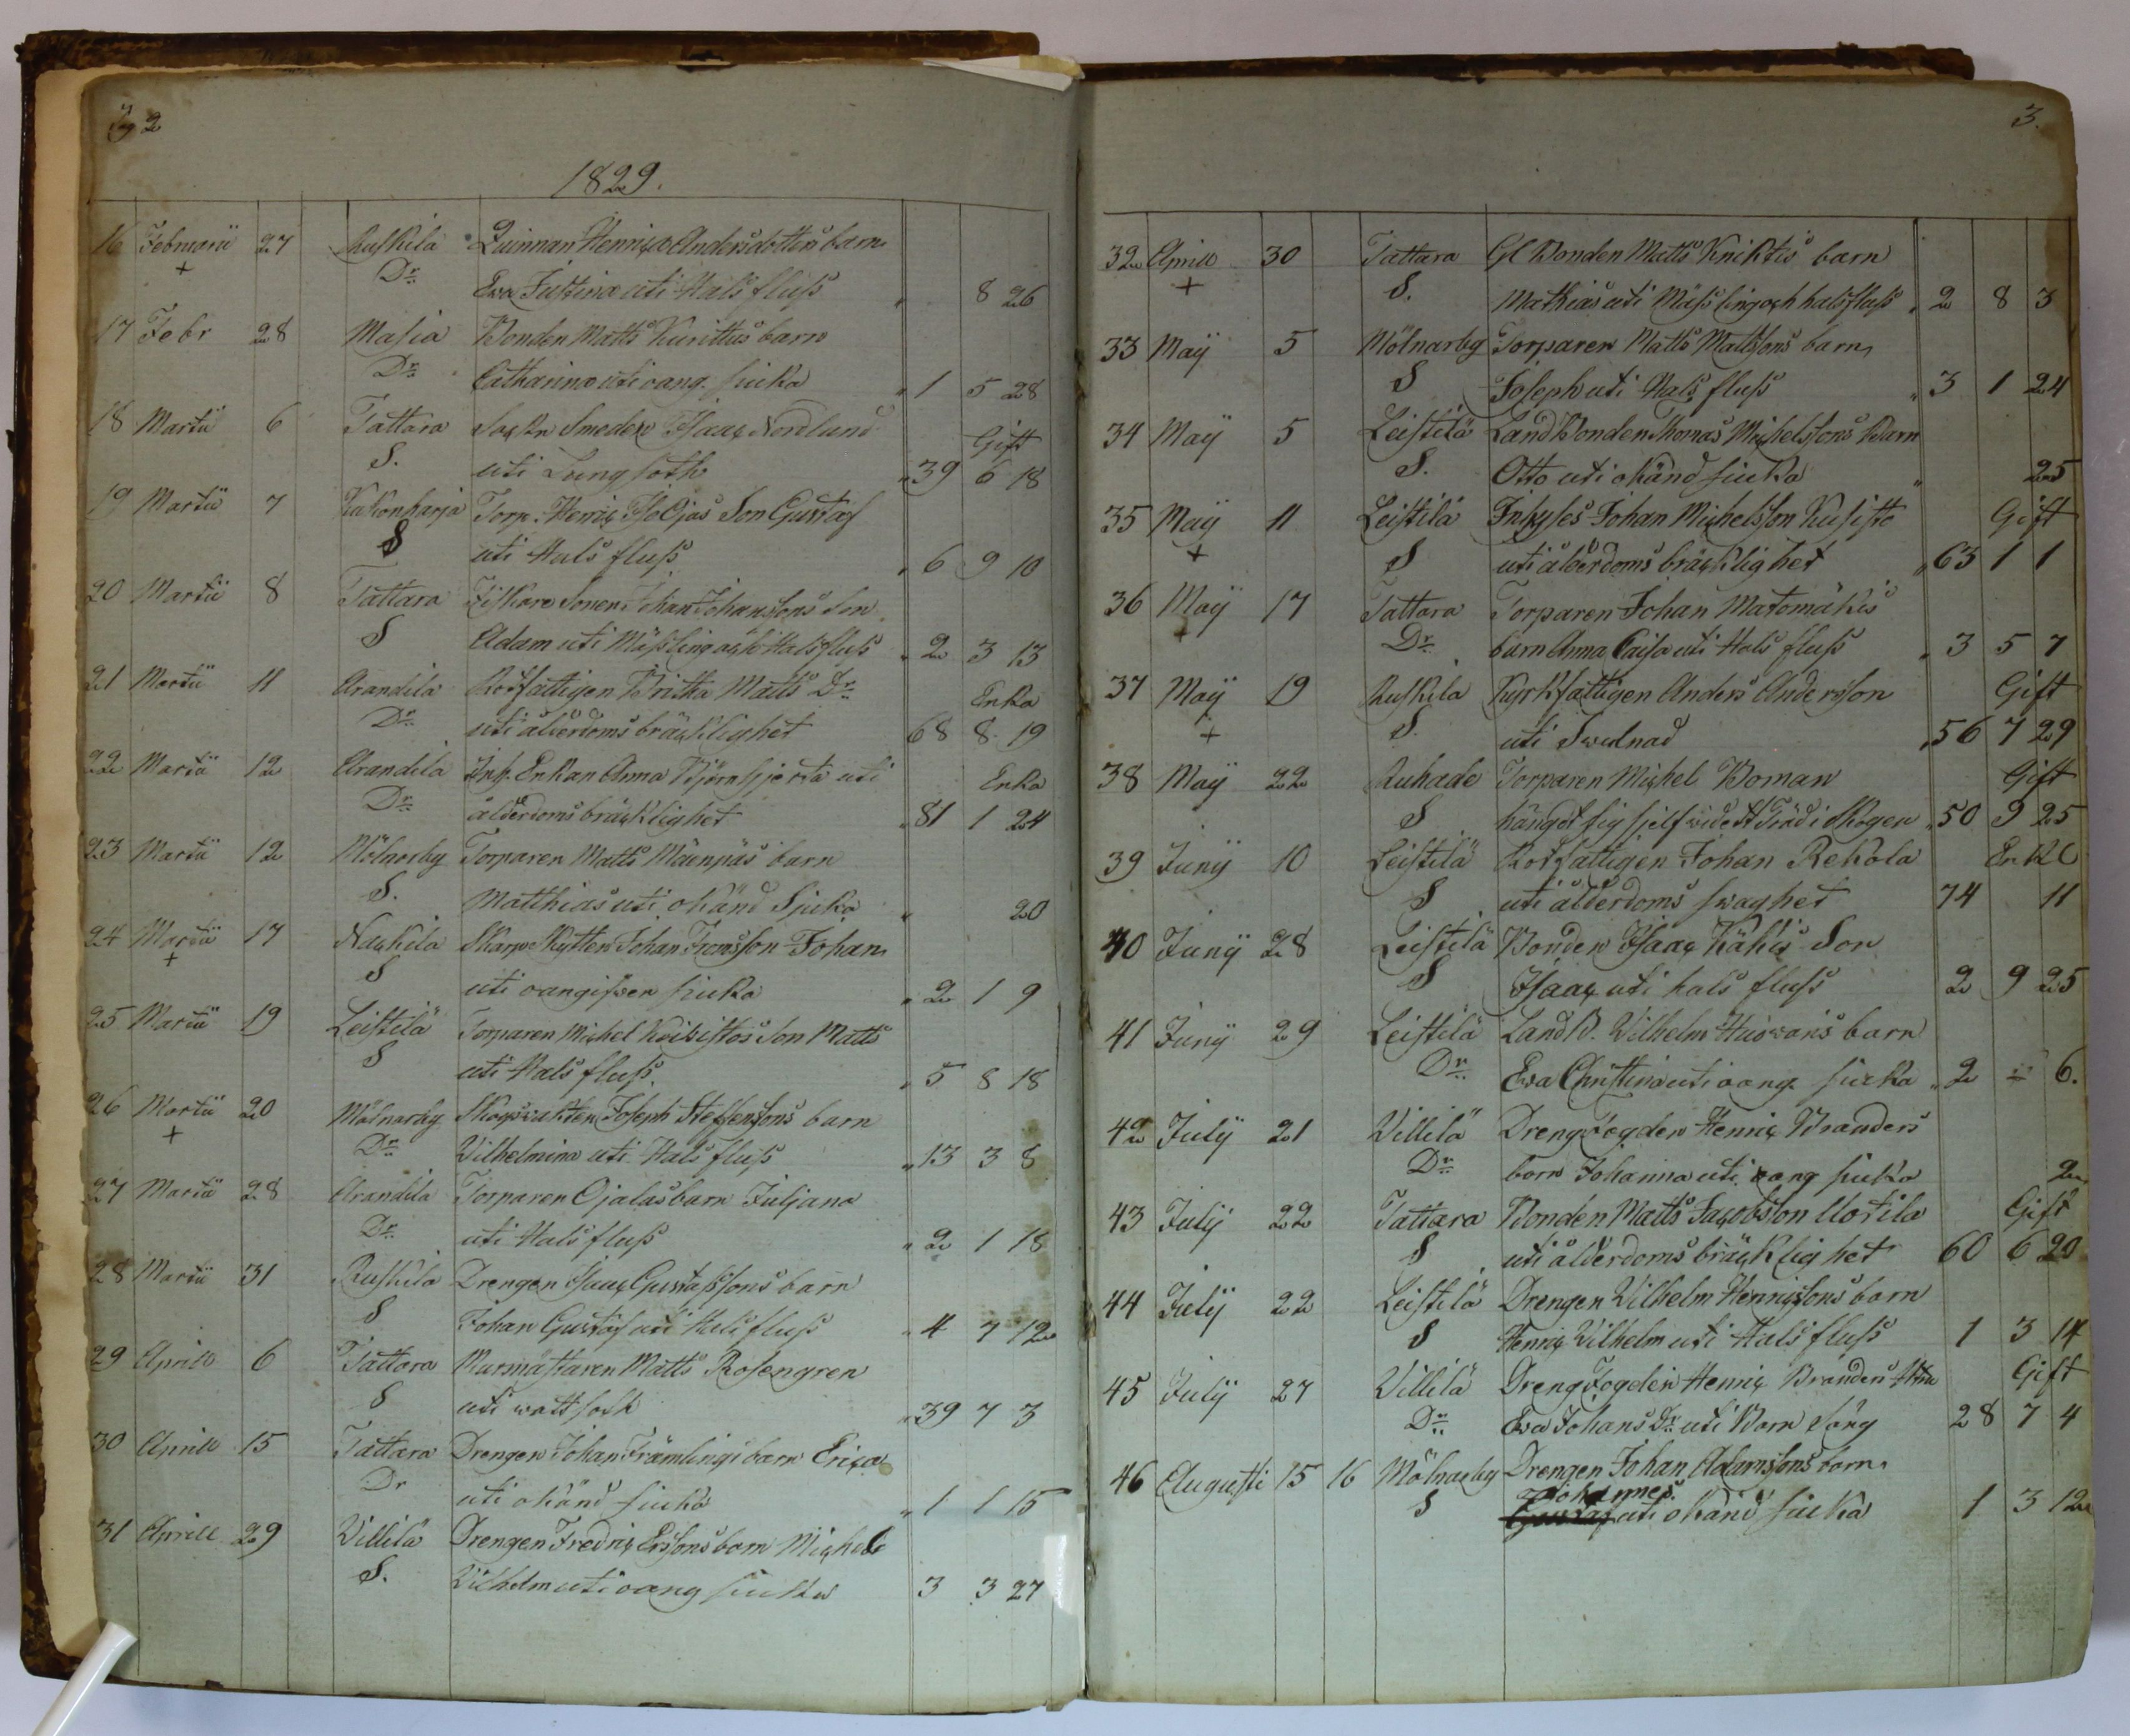 2
1829.
16 Februarii 27 Ruskila Quinnan Henrica Andersdotters barn
+ Dr. Eva Justina uti Hals fluss " 8 26
17 Febr 28 Masia Bonden Matts Kurittus barn
Dr. Catharina uti oang. siuka " 1 5 28
18 Martii 6 Tattara Sockn Smeden Isaac Nordlund Gift
S. uti Lungsoth " 39 6 18
19 Martii 7 Kakonharja Torp. Henric Iso Ojas Son Gustaf
S uti Hals fluss " 6 9 10
20 Martii 8 Tattara Fiskare Sonen Johan Johanssons Son
S Adam uti Mässling och Halsfluss " 2 3 13
21 Martii 11 Arandila Rotfattigen Britha Matts Dr. Enka
Dr. uti ålderdoms bräcklighet 68 8 19
22 Martii 12 Arandila Inh. Enkan Anna Björnhjerta uti Enka
Dr. ålderdoms bräcklighet " 81 1 24
23 Martii 12 Mölnarby Torparen Matts Mäenpäs barn
S. Matthias uti okänd Sjuka " 20
24 Martii 17 Nackila Skarpskytten Johan Johan
+ S uti oangifven siuka " 2 1 9
25 Martii 19 Leistilä Torparen Michel Koivistos Son Matts
S uti Hals fluss " 5 8 18
26 Martii 20 Mölnarby Skogvakten Joseph Steffenssons barn
+ Dr. Vilhelmina uti Hals fluss " 13 3 8
27 Martii 28 Arandila Torparen Ojalas barn Juljana
Dr. uti Hals fluss " 2 1 18
28 Martii 31 Ruskila Drengen Isaac Gustafssons barn
S Johan Gustaf uti Hals fluss " 4 7 12
29 Aprill 6 Tattara Murmästaren Matts Rosengren
S uti wattsoth " 39 7 3
30 Aprill 15 Tattara Drengen Johan Främlings barn Erica
Dr uti okänd siuka " 1 1 15
31 Aprill 29 Villila Drengen Fredric Ersons barn Michel
S. Vilhelm uti oang siuka 3 3 27
3.
32 Aprill 30 Tattara Gl Bonden Matts Knihtis barn
+ S. Mathias uti Mässling och halsfluss " 2 8 3
33 Maij 5 Mölnarby Torparen Matts Mattsons barn
S Joseph uti Hals fluss " 3 1 24
34 Maij 5 Leistilä Land Bonden Thomas Michelssons Barn
S. Otto uti okänd siuka " 25
35 Maij 11 Leistilä Inhyses Johan Michelsson Kusisto Gift
+ S uti ålderdoms bräcklighet " 63 1 1
36 Maij 17 Tattara Torparen Johan Matomäkis
+ Dr. barn Anna Caisa uti Hals fluss " 3 5 7
37 Maij 19 Ruskila Kyrkfattigen Anders Andersson Gift
+ S. uti Swulnad " 56 7 29
38 Maij 22 Ruhade Torparen Michel Boman Gift
S hängdt sig sjelf wid ett Träd i Skogen " 50 9 25
39 Junij 10 Leistilä Rotfattigen Johan Rekola Enkl
S uti ålderdoms swaghet 74 11
40 Junij 28 Leistilä Bonden Isaac Kähis Son
S Isaac uti hals fluss 2 9 25
41 Junij 29 Leistilä Land B. Vilhelm barn
Dr. Eva Christina uti oang siuka " 2 " 6.
42 Julij 21 Villilä Dreng Fogden Henric Branders
Dr. barn Johanna uti oang siuka 2
43 Julij 22 Tattara Bonden Matts Jacobsson Uotila Gift
S uti ålderdoms bräcklighet 60 6 20
44 Julij 22 Leistilä Drengen Vilhelm Henricssons barn
S Henric Vilhelm uti Hals fluss 1 3 14
45 Julij 27 Villilä Dreng Fogden Henric Branders Hu Gift
Dr. Eva Johans Dr. uti Barn säng 28 7 4
46 Augusti 15 16 Mölnarby Drengen Johan Adamssons barn
Johannes
S Gustaf uti okänd siuka 1 3 12